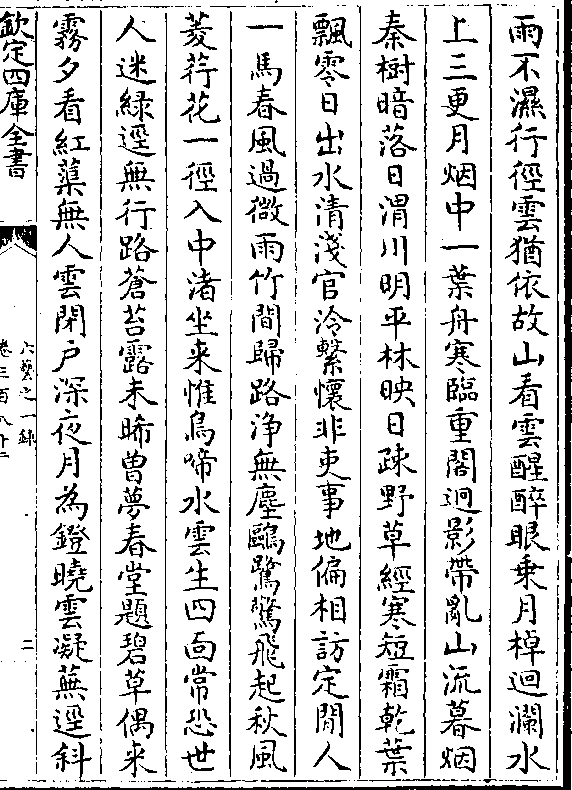 雨不濕行徑雲猶依故山看雲醒醉眼乗月棹迴瀾水
上三更月烟中一葉舟寒臨重閣迥影帶亂山流暮烟
秦樹暗落日渭川明平林映日疎野草經寒短霜乾葉
飄零日出水清淺官冷繫懷非吏事地偏相訪定閒人
一馬春風過微雨竹間歸路浄無塵鷗鷺驚飛起秋風
菱荇花一徑入中渚坐来惟鳥啼水雲生四面常恐世
人迷緑逕無行路蒼苔露未晞曽夢春堂題碧草偶来
霧夕看紅蕖無人雲閉户深夜月為鐙曉雲凝蕪逕斜
欽定四庫全書
六藝之一録
卷三百八十二
二